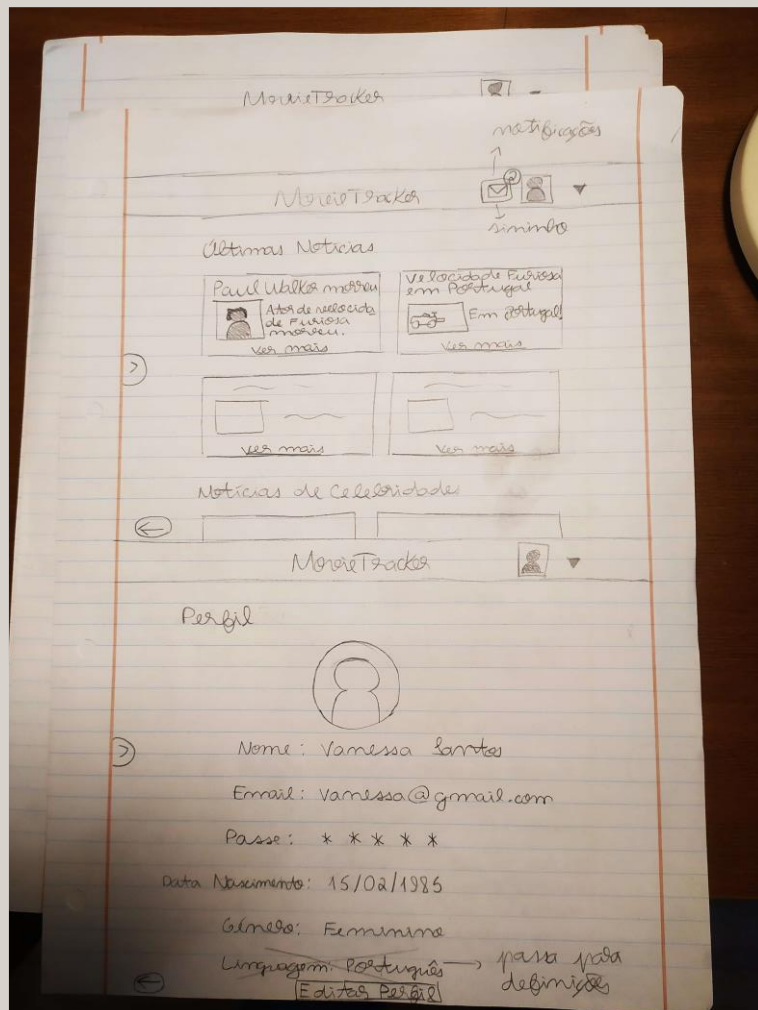 MovieTracker
notificações
MovieTracker
sininho
Últimas Notícias
Paul Walker morreu
Ator de velocida
de Furiosa
morreu.
ver mais
Velocidade Furiosa
em Portugal
Em Portugal!
ver mais
ver mais
ver mais
Notícias de Celebridades
MovieTracker
Perfil
Nome: Vanessa Santos
Email: vanessa@gmail.com
Passe: * * * * *
Data Nascimento: 15/02/1985
Género: Feminino
Linguagem: Português → passa para
definições
Editar Perfil